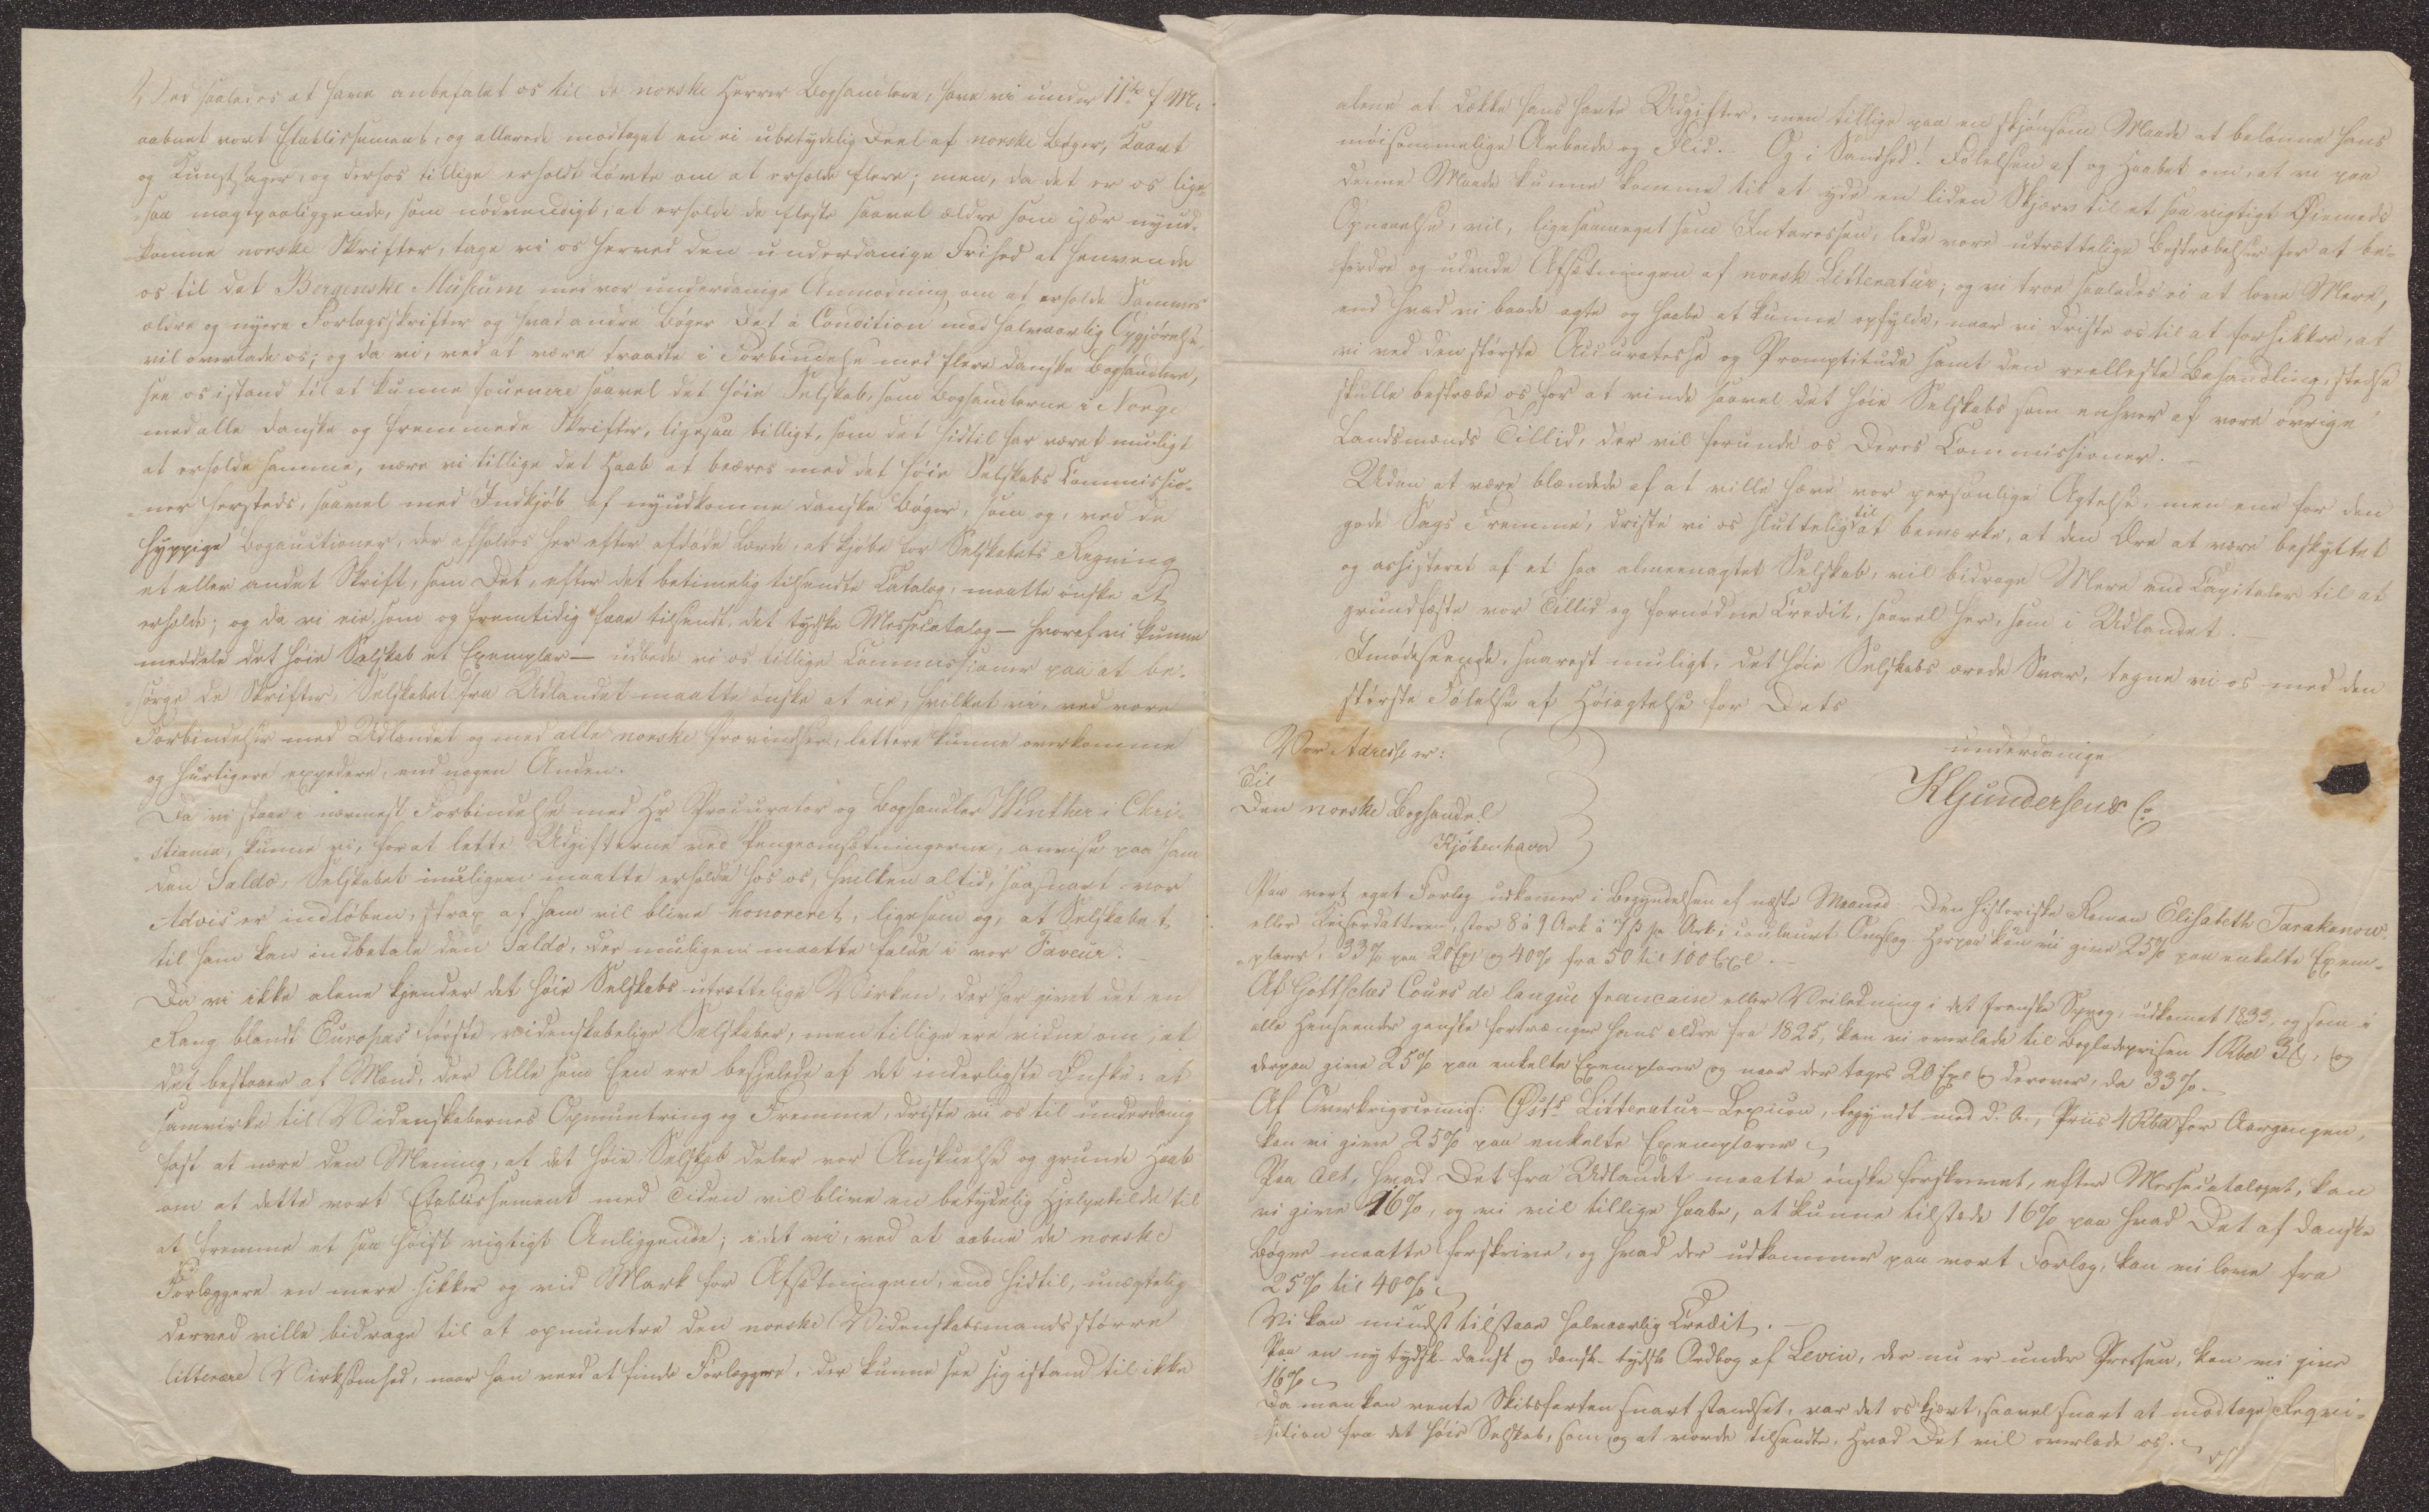 Ved saaledes at have anbefalet os til de norske Herrer Boghandlere, have vi under 11te f. M.
aabnet vort Etablissement, og allerede modtaget en ei ubetydelig Deel af norske Bøger, Kaart
og Kunstsager, og derhos tillige erholdt Løvte om at erholde flere; men, da det er os lige-
saa magtpaaliggende, som nødvendigt, at erholde de fleste saavel ældre som især nyud-
komne norske Skrifter, tage vi os herved den underdanige Frihed at henvende
os til det Bergenske Museum med vor underdanige Anmodning om at erholde Sammes
ældre og nyere Forlagsskrifter og hvad andre Bøger Det à Condition mod halvaarlig Opgjørelse,
vil overlade os; og da vi, ved at være traadte i Forbindelse med flere danske Boghandlere,
see os istand til at kunne fournere saavel det høie Selskab, som Boghandlerne i Norge
med alle danske og fremmede Skrifter, ligesaa billigt, som det hidtil har været muligt
at erholde samme, nære vi tillige det Haab at beæres med det høie Selskabs Commissio-
ner hersteds, saavel med Indkjøb af nyudkomne danske Bøger, som og, ved de
hyppige Bogauctioner, der afholdes her efter afdøde Lærde, at kjøbe for Selskabets Regning
et eller andet Skrift, som Det, efter det betimelig tilsendte Catalog, maatte ønske at
erholde; og da vi eie, som og fremtidig faae tilsendt, det tydske Messecatalog — hvoraf vi kunne
meddele det høie Selskab et Exemplar — udbede vi os tillige Commissioner paa at be-
sørge de Skrifter, Selskabet fra Udlandet maatte ønske at eie, hvilket vi, ved vore
Forbindelser med Udlandet og med alle norske Provindser, lettere kunne overkomme
og hurtigere expedere, end nogen Anden.
Da vi staae i nærmest Forbindelse med Hr Procurator og Boghandler Winther i Chri-
stiania, kunne vi, for at lette Udgifterne ved Pengeomsætningerne, anvise paa ham
den Saldo, Selskabet muligen maatte erholde hos os, hvilken altid, saasnart vor
Advis er indløben, strax af ham vil blive honoreret, ligesom og, at Selskabet
til ham kan indbetale den Saldo, der muligen maatte falde i vor Faveur.
Da vi ikke alene kjender det høie Selskabs utrættelige Virken, der har givet det en
Rang blandt Europas første videnskabelige Selskaber, men tillige ere vidne om, at
det bestaaer af Mænd, der Alle som Een ere besjelede af det inderligste Ønske: at
samvirke til Videnskabernes Opmuntring og Fremme, driste vi os til underdanig
fast at nære den Mening, at det høie Selskab deler vor Anskuelse og grunde Haab
om at dette vort Etablissement med Tiden vil blive en betydelig Hjelpekilde til
at fremme et saa høist vigtigt Anliggende; idet vi, ved at aabne de norske
Forlæggere en mere sikker og vid Mark for Afsætningen, end hidtil, unægtelig
derved ville bidrage til at opmuntre den norske Videnskabsmands større
litterære Virksomhed, naar han veed at finde Forlæggere, der kunne see sig istand til ikke
alene at dække hans havte Udgifter, men tillige paa en skjønsom Maade at belønne hans
møisommelige Arbeide og Flid. — Og i Sandhed! Følelsen af og Haabet om, at vi paa
denne Maade kunne komme til at yde en liden Skjærv til et saa vigtigt Øiemeds
Opnaaelse, vil, ligesaameget som Interessen, lede vore utrættelige Bestræbelser for at be-
fordre og udvide Afsætningen af norsk Litteratur; og vi troe saaledes ei at love Mere,
end hvad vi baade agte og haabe at kunne opfylde, naar vi driste os til at forsikkre, at
vi ved den største Accuratesse og Promptitude samt den reelleste Behandling, stedse
skulle bestræbe os for at vinde saavel det høie Selskabs som enhver af vore øvrige
Landsmænds Tillid, der vil forunde os Deres Commissioner. —
Uden at være blændede af at ville hæve vor personlige Agtelse, men ene for den
gode Sags Fremme, driste vi os sluttelig til at bemærke, at den Ære at være beskyttet
og assisteret af et saa almeenagtet Selskab, vil bidrage Mere end Capitaler til at
grundfæste vor Tillid og fornødne Credit, saavel her, som i Udlandet.
Imødeseende, snarest muligt, det høie Selskabs ærede Svar, tegne vi os med den
største Følelse af Høiagtelse for Dets
underdanige
K Gundersen & Co
Vor Adresse er:
Til
Den norske Boghandel
Kjøbenhavn
Paa vort eget Forlag udkommer i Begyndelsen af næste Maaned: Den historiske Roman Elisabeth Tarakanow
eller Keiserdatteren, stor 8 à 9 Ark à 7 ß pr Ark i couleurt Omslag. Herpaa kan vi give 25% paa enkelte Exem-
plarer, 33% paa 20 Expl og 40% fra 50 til 100 Expl. —
Af Gottsches Cours de langue francaise eller Veiledning i det franske Sprog, udkomet 1833, og som i
alle Henseender ganske fortrænger hans ældre fra 1825, kan vi overlade til Bogladeprisen 1 Rbd 3 , og
derpaa give 25% paa enkelte Exemplarer og naar der tages 20 Expl og derover, da 33%. —
Af Overkrigscomiss: Østs Litteratur-Lexicon, begyndt med d. A., Priis 4 Rbd for Aargangen,
kan vi give 25% paa enkelte Exemplarer.
Paa Alt, hvad Det fra Udlandet maatte ønske forskrevet, efter Messecataloget, kan
vi give 16%, og vi vil tillige haabe, at kunne tilstede 16% paa hvad Det af danske
Bøger maatte forskrive, og hvad der udkommer paa vort Forlag, kan vi love fra
25% til 40%.
Vi kan mindst tilstaae halvaarlig Credit. —
Paa en ny tydsk-dansk og dansk-tydsk Ordbog af Levin, der nu er under Pressen, kan vi give
16%.
Da man kan vente Skibsfarten snart standset, var det os kjært, saavel snart at modtage Requi-
sition fra det høie Selskab, som og at vorde tilsendte, Hvad Det vil overlade os. —